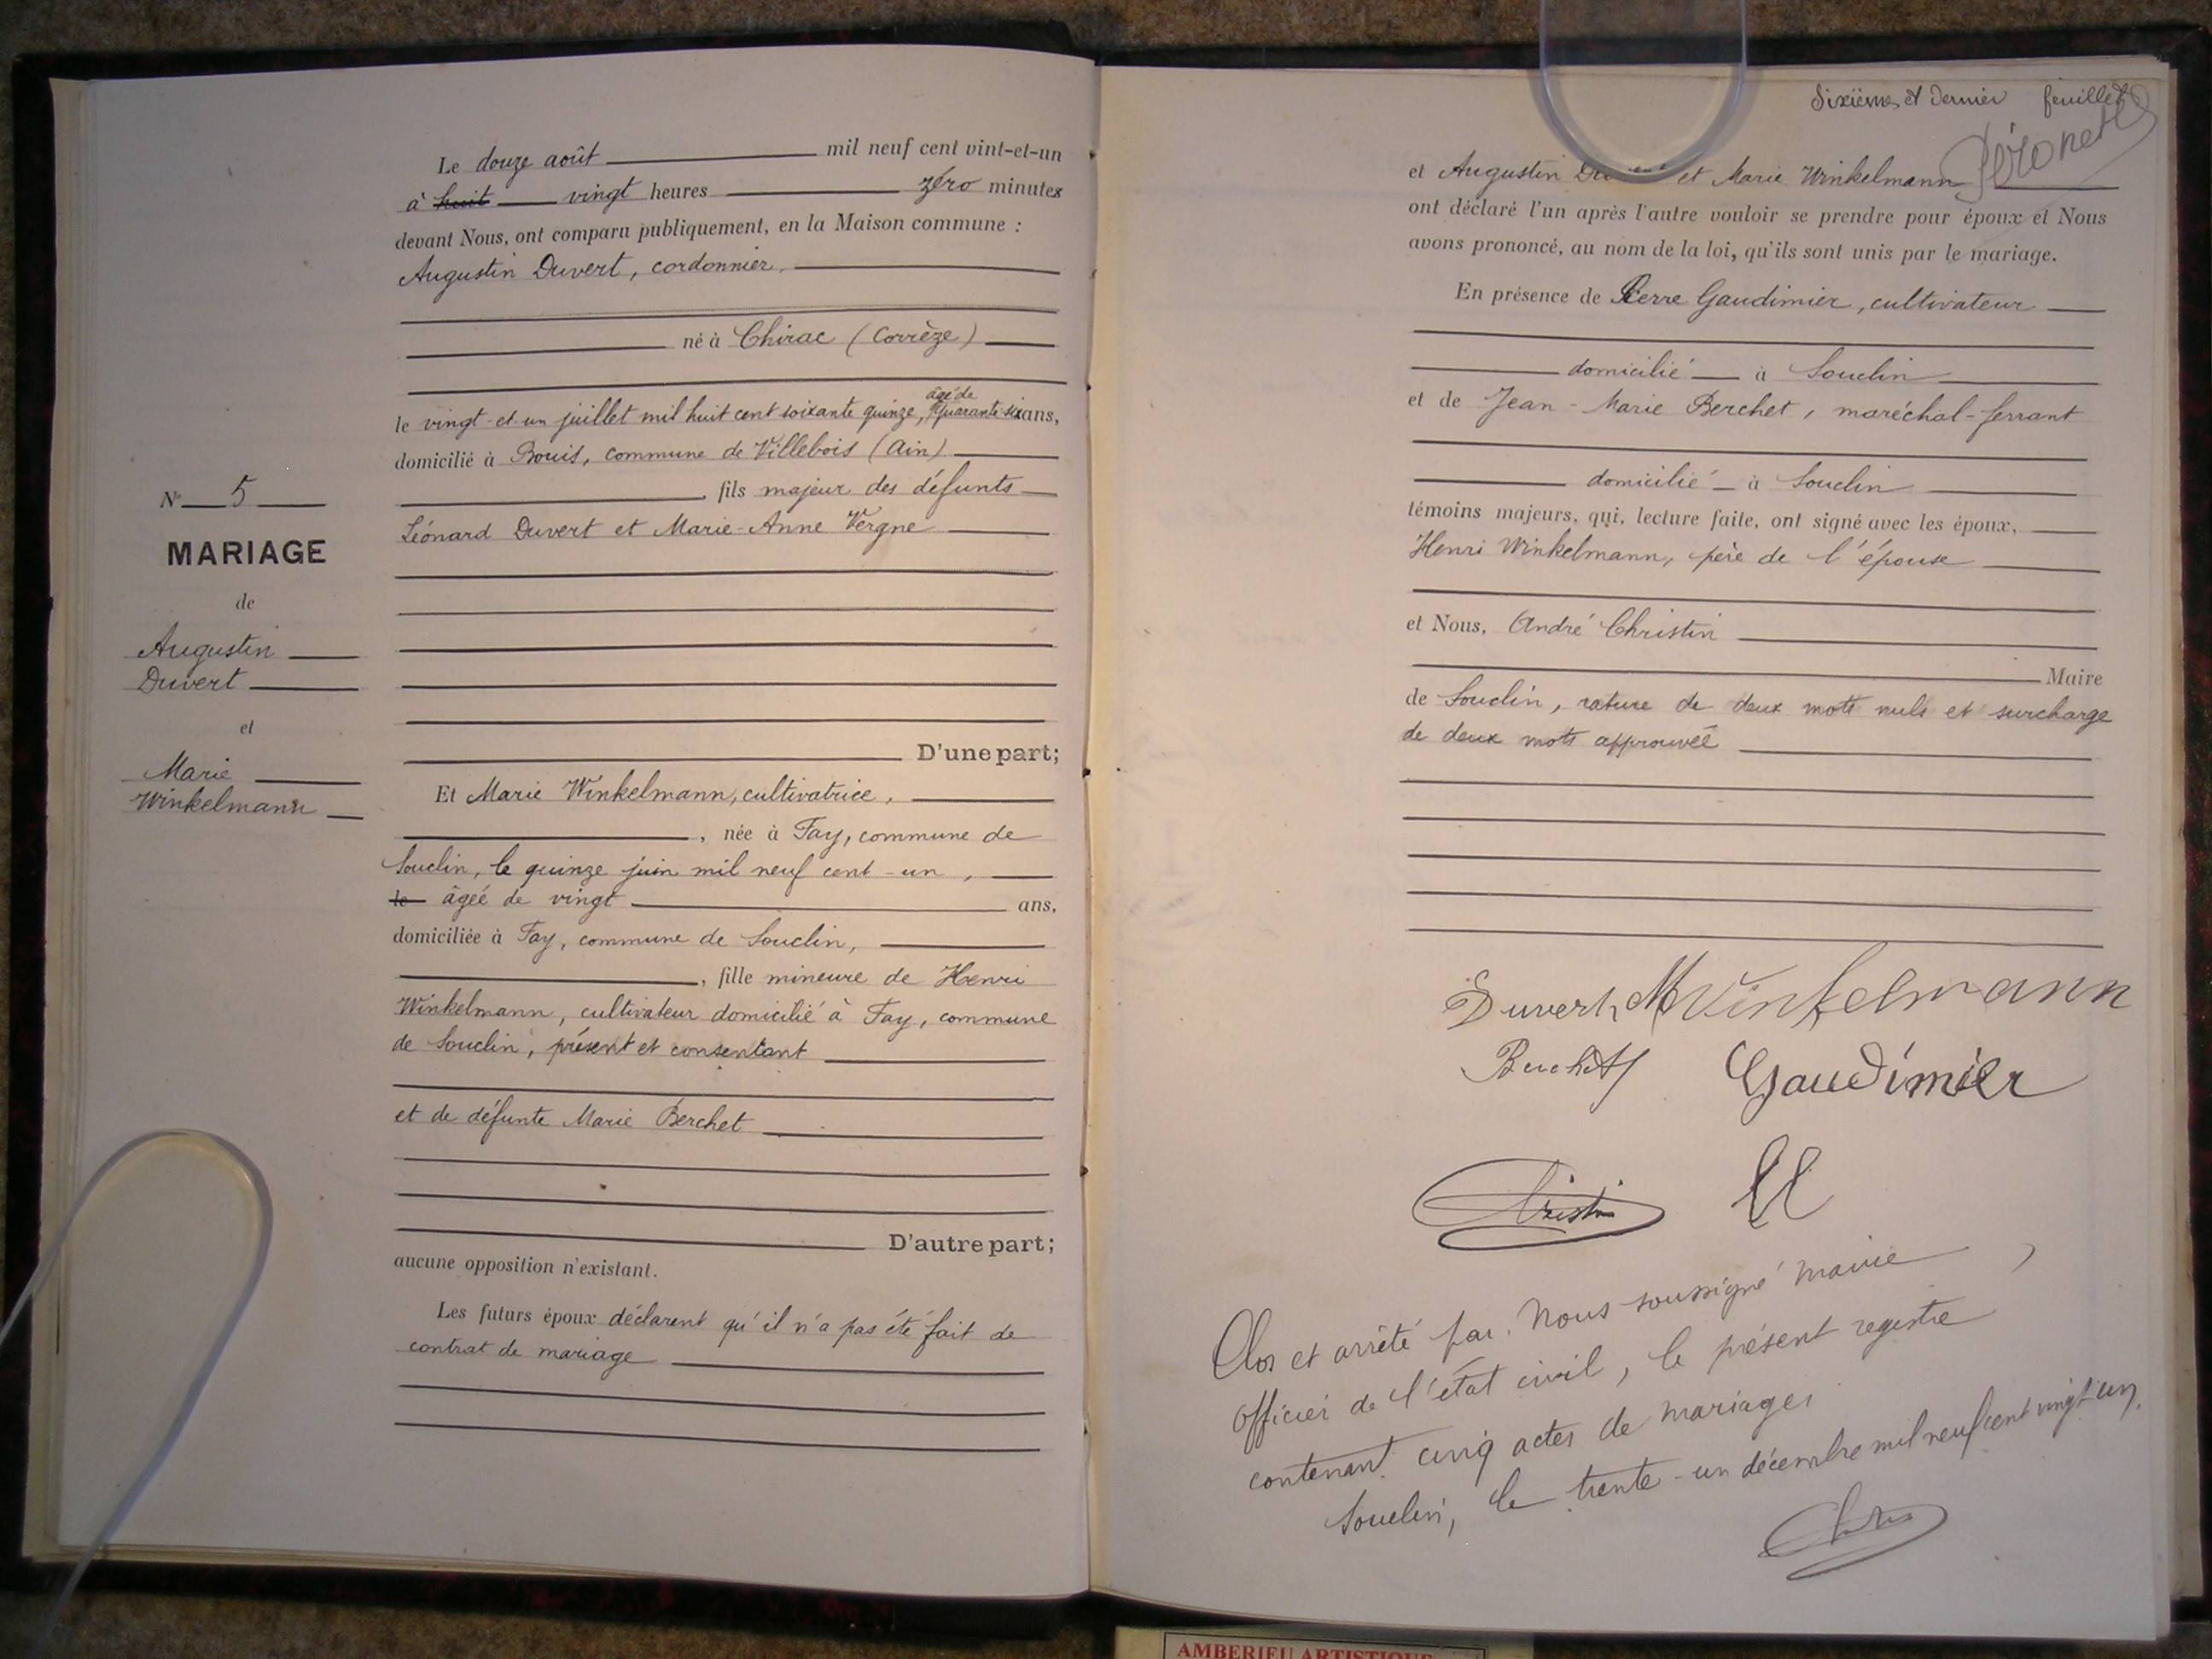 Le douze août mil neuf cent vint-et-un
à huit vingt heures zéro minutes
devant Nous, ont comparu publiquement, en la Maison commune :
Augustin Duvert, cordonnier,
né à Chirac (Corrèze)
âgé de
le vingt-et-un juillet mil huit cent soixante quinze, Quarante-six ans,
domicilié à Bouis, commune de Villebois (Ain)
fils majeur des défunts
Léonard Duvert et Marie-Anne Vergne
D'une part;
Et Marie Winkelmann, cultivatrice,
, née à Fay, commune de
Souclin, le quinze juin mil neuf cent-un,
le âgée de vingt ans,
domiciliée à Fay, commune de Souclin,
, fille mineure de Henri
Winkelmann, cultivateur domicilié à Fay, commune
de Souclin, présent et consentant
et de défunte Marie Berchet
D'autre part;
aucune opposition n'existant.
Les futurs époux déclarent qu'il n'a pas été fait de
contrat de mariage
N° 5
MARIAGE
de
Augustin
Duvert
et
Marie
Winkelmann
Sixième et dernier feuillet
et Augustin et Marie Winkelmann
ont déclaré l'un après l'autre vouloir se prendre pour époux et Nous
avons prononcé, au nom de la loi, qu'ils sont unis par le mariage.
En présence de Pierre Gaudimier, cultivateur
domicilié à Souclin
et de Jean-Marie Berchet, maréchal-ferrant
domicilié à Souclin
témoins majeurs, qui, lecture faite, ont signé avec les époux,
Henri Winkelmann, père de l'épouse
et Nous, André Christin
Maire
de Souclin, rature de deux mots nuls et surcharge
de deux mots approuvée
Duvert MWinkelmann
Berchet Gaudimier
Christin
Clos et arrêté par Nous soussigné maire
officier de l'état civil, le présent registre
contenant cinq actes de mariages
Souclin, le trente-un décembre mil neuf cent vingt un.
AMBERIEU ARTISTIQUE